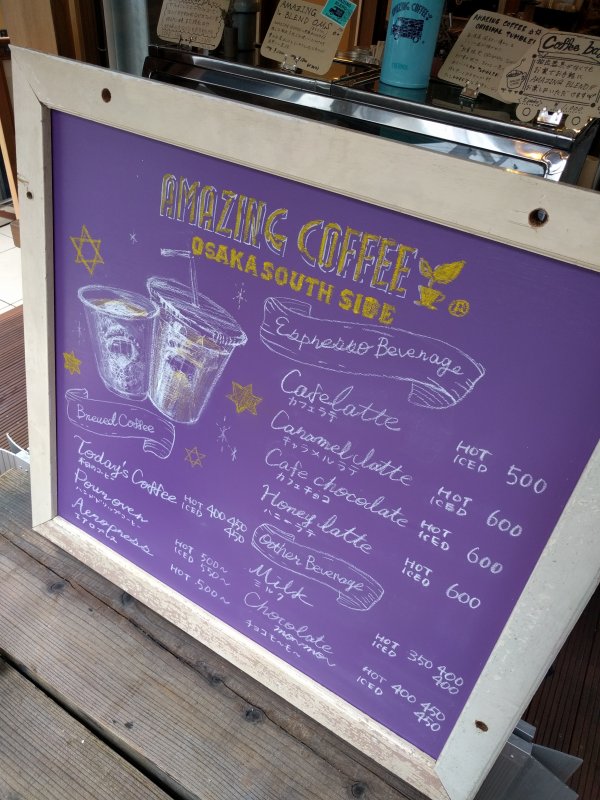 AMAZING
BLEND GALS
AMAZING COFFEE
AMAZING COFFEE
ORIGINAL TUMBLER
Coffee bag
AMAZING COFFEE
OSAKA SOUTH SIDE
Espresso Beverage
Cafe latte
カフェラテ
HOT
ICED
500
Caramel latte
キャラメルラテ
HOT
ICED
600
Cafe chocolate
カフェチョコ
HOT
ICED
600
Honey latte
ハニーラテ
HOT
ICED
600
Brewed Coffee
Today's Coffee
本日のコーヒー
HOT 400 450
ICED 450
Pour over
ハンドドリップコーヒー
HOT 500~
ICED 550~
Aeropress
エアロプレス
HOT 500~
Oother Beverage
Milk
ミルク
HOT 350 400
ICED 400
Chocolate
monmon
チョコモ〜モ〜
HOT 400 450
ICED 450